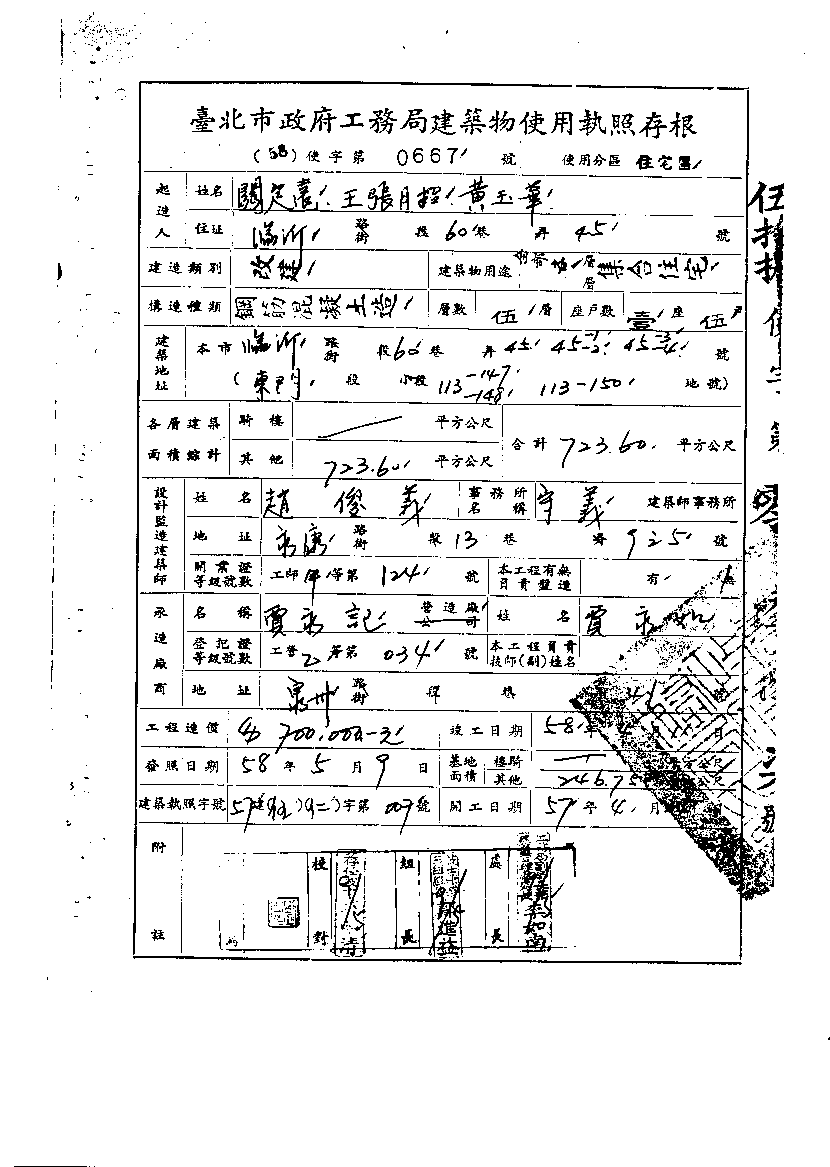 臺北市政府工務局建築物使用執照存根
(58) 使字第 0667 號 使用分區 住宅區
起造人 姓名 王張月招 黃玉華
住址 臨沂 路街 段 60 巷 弄 45 號
建造類別 改建 建築物用途 集合住宅
構造種類 鋼筋混凝土造 層數 伍 層 座戶數 壹 座 伍 戶
建築地址 本市 臨沂 路街 段 60 巷 弄 45 45-1 45-2 45-3 45-4 號
(東門 段 小段 113-147 -148 113-150 地號)
各層建築面積綜計 騎樓 平方公尺 合計 723.60 平方公尺
其他 723.60 平方公尺
設計監造建築師 姓名 趙俊義 事務所名稱 建築師事務所
地址 永康 路街 段 13 巷 925 號
開業證等級號數 工師 甲 等第 124 號 本工程有無負責監造 有 無
承造廠商 名稱 賈永記 營造廠公司 姓名 賈永
登記證等級號數 工營 乙 等第 034 號 本工程負責技師(副)姓名
地址 泉州 路街 段 巷 46 號
工程造價 700,000元 竣工日期 58 年 4 月 日
發照日期 58 年 5 月 9 日 基地面積 騎樓 平方公尺
其他 246.75 平方公尺
建築執照字號 57建 字第 009 號 開工日期 57 年 4 月
附註 校對 組長 處長
伍拾捌 使字第 零